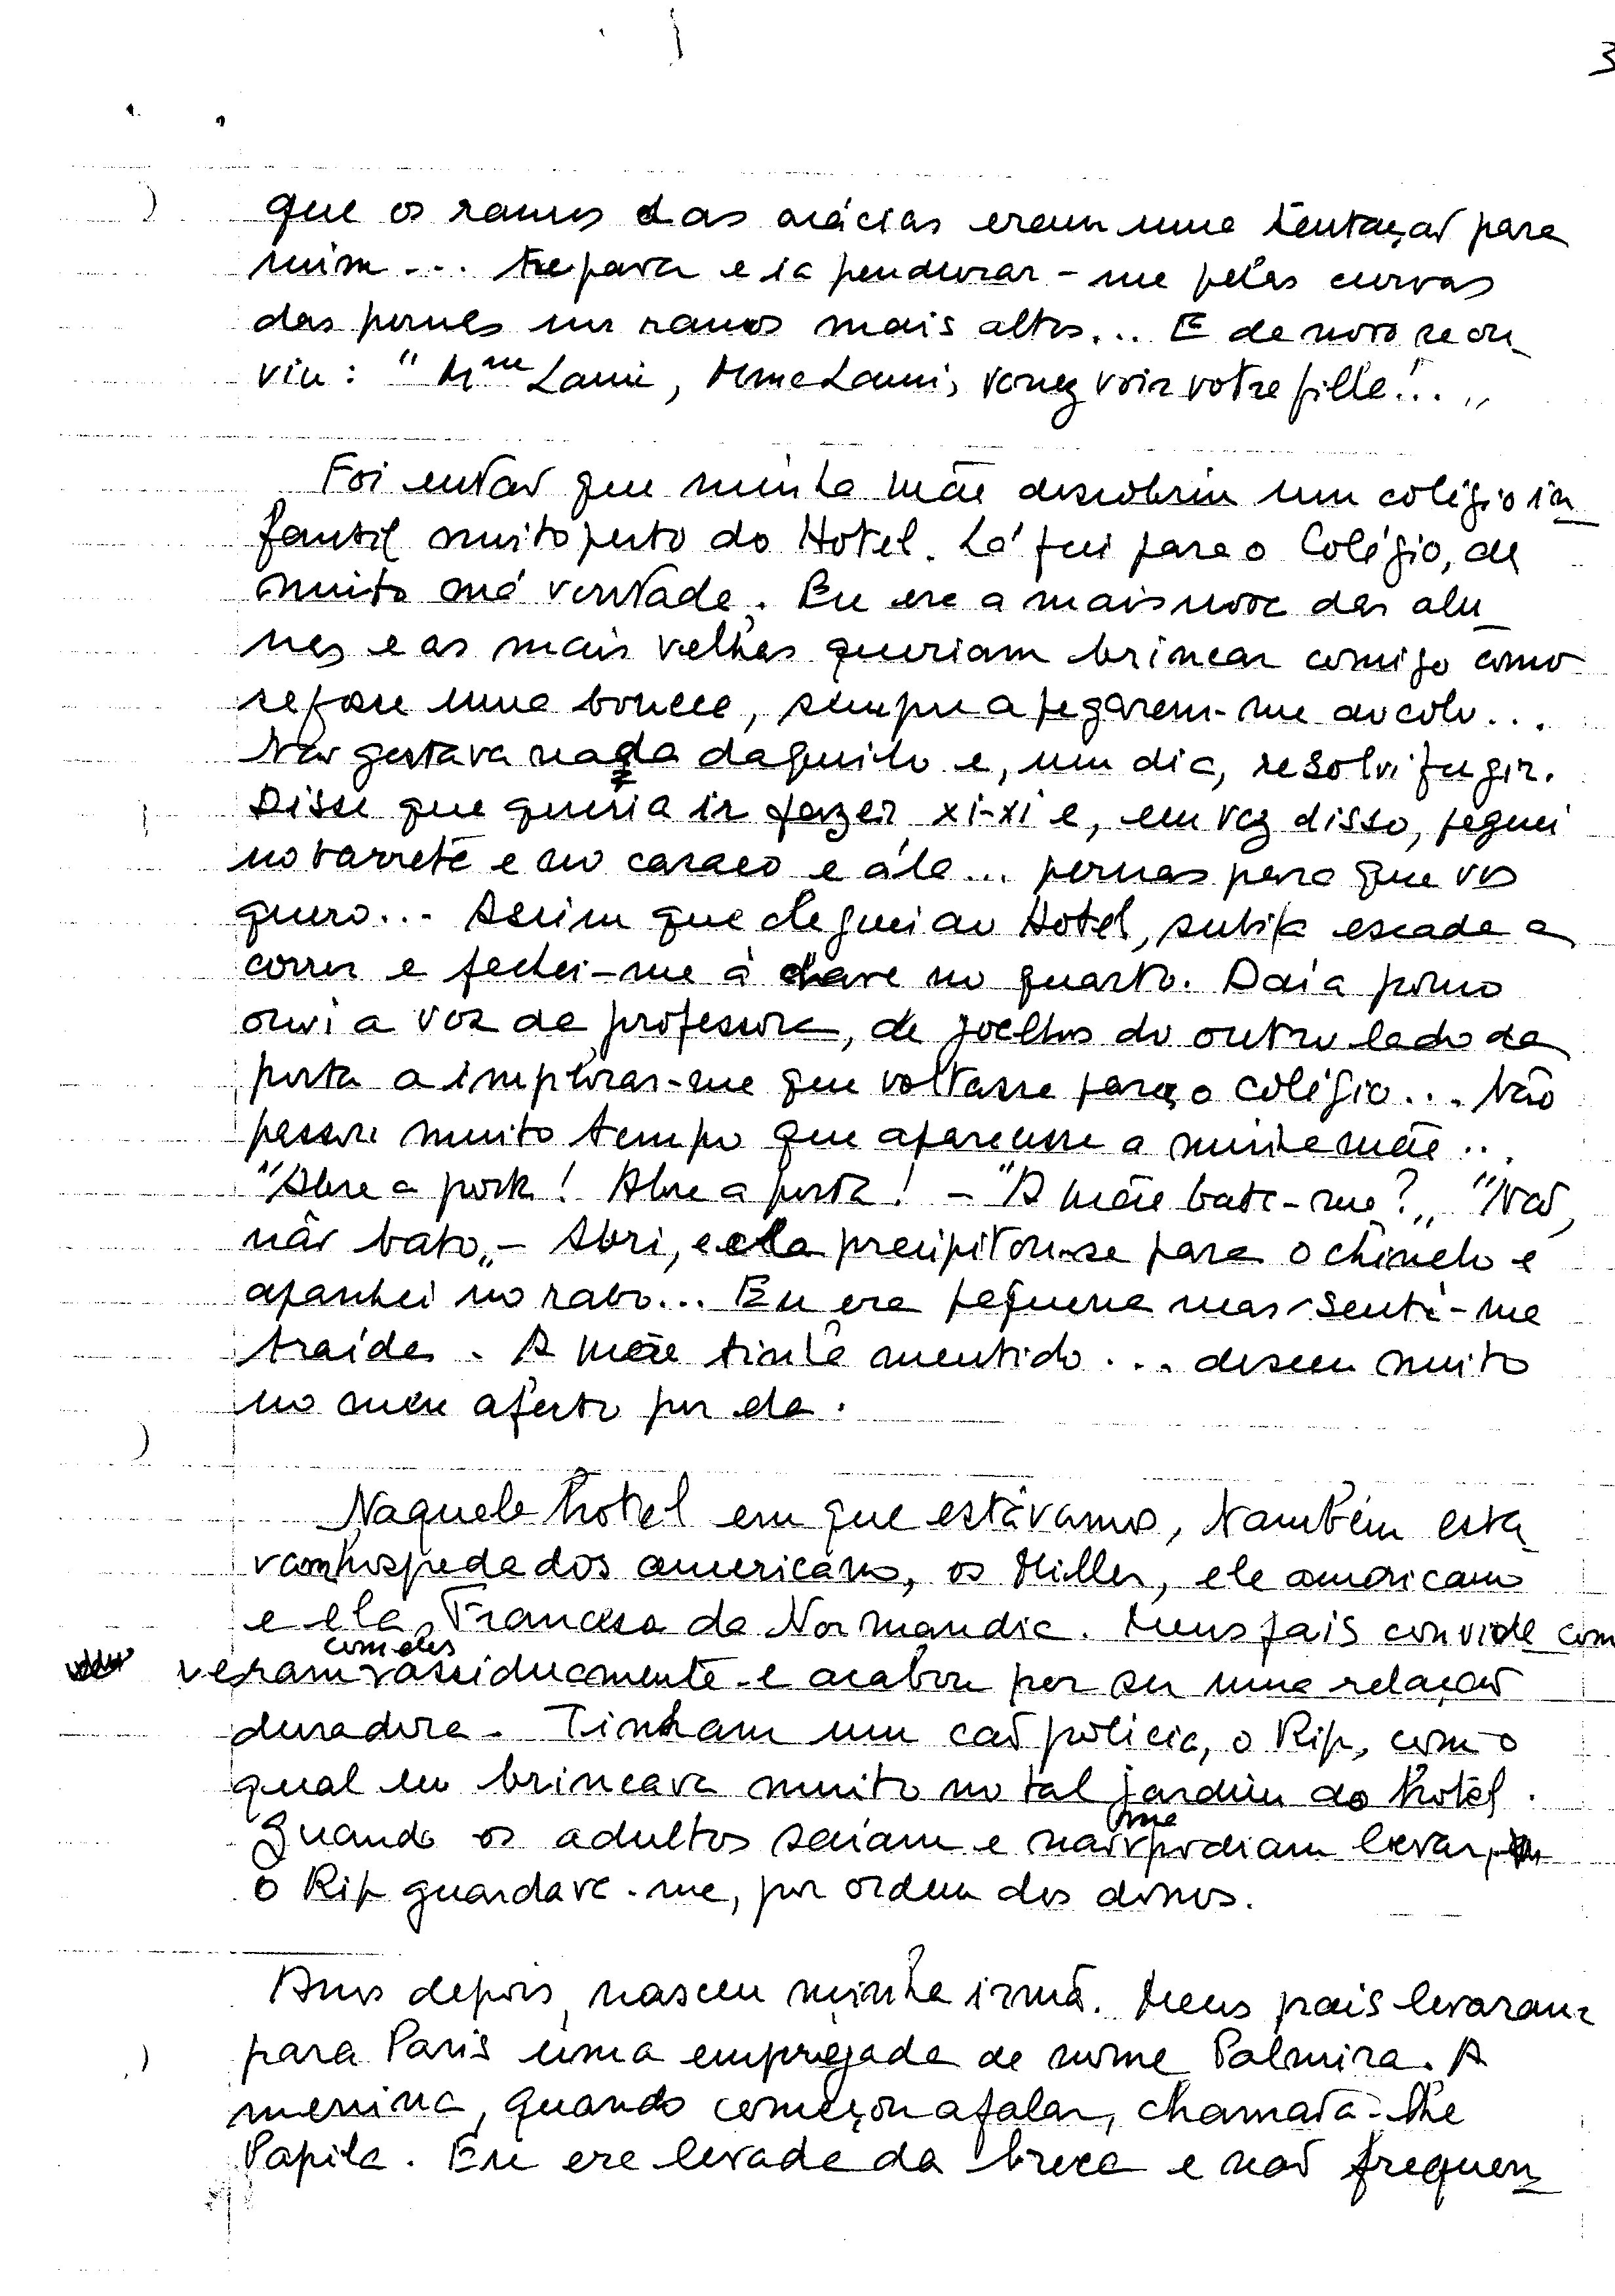 3
que os ramos das acácias eram uma tentação para
mim... Trepava e ia pendurar-me pelas curvas
das pernas nos ramos mais altos... E de novo se ou_
viu: "Mme Lami, Mme Lami, venez voir votre fille!..."
Foi então que minha mãe descobriu um colégio in_
fantil muito perto do Hotel. Lá fui para o Colégio, de
muito má vontade. Eu era a mais nova das alu_
nas e as mais velhas queriam brincar comigo como
se fosse uma boneca, sempre a pegarem-me ao colo...
Não gostava nada daquilo e, um dia, resolvi fugir.
Disse que queria ir fazer xi-xi e, em vez disso, peguei
no barrete e no casaco e ála... pernas para que vos
quero... Assim que cheguei ao Hotel, subi a escada a
correr e fechei-me à chave no quarto. Daí a pouco
ouvi a voz da professora, de joelhos do outro lado da
porta a implorar-me que voltasse para o colégio... Não
passou muito tempo que aparecesse a minha mãe...
"Abre a porta! Abre a porta! - "A mãe bate-me?" "Não,
não bato" - Abri, e ela precipitou-se para o chinelo e
apanhei no rabo... Eu era pequena mas senti-me
traída. A mãe tinha mentido... desceu muito
no meu afecto por ela.
Naquele hotel em que estávamos, também esta_
vam hospedados americanos, os Miller, ele americano
e ela, Francesa da Normandia. Meus pais convive_ com
com eles
veram assiduamente e acabou por ser uma relação
duradora. Tinham um cão polícia, o Rip, com o
qual eu brincava muito no tal jardim do hotel.
me
Quando os adultos saíam e não podiam levar,
o Rip guardava-me, por ordem dos donos.
Anos depois, nasceu minha irmã. Meus pais levaram
para Paris uma empregada de nome Palmira. A
menina, quando começou a falar, chamava-lhe
Papila. Eu era levada da breca e não frequen_